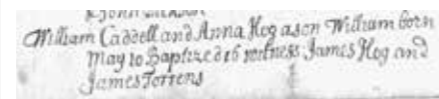 William Caddell and Anna Hog a son William born
May 10 Baptized 16 witness James Hog and
James Torrens